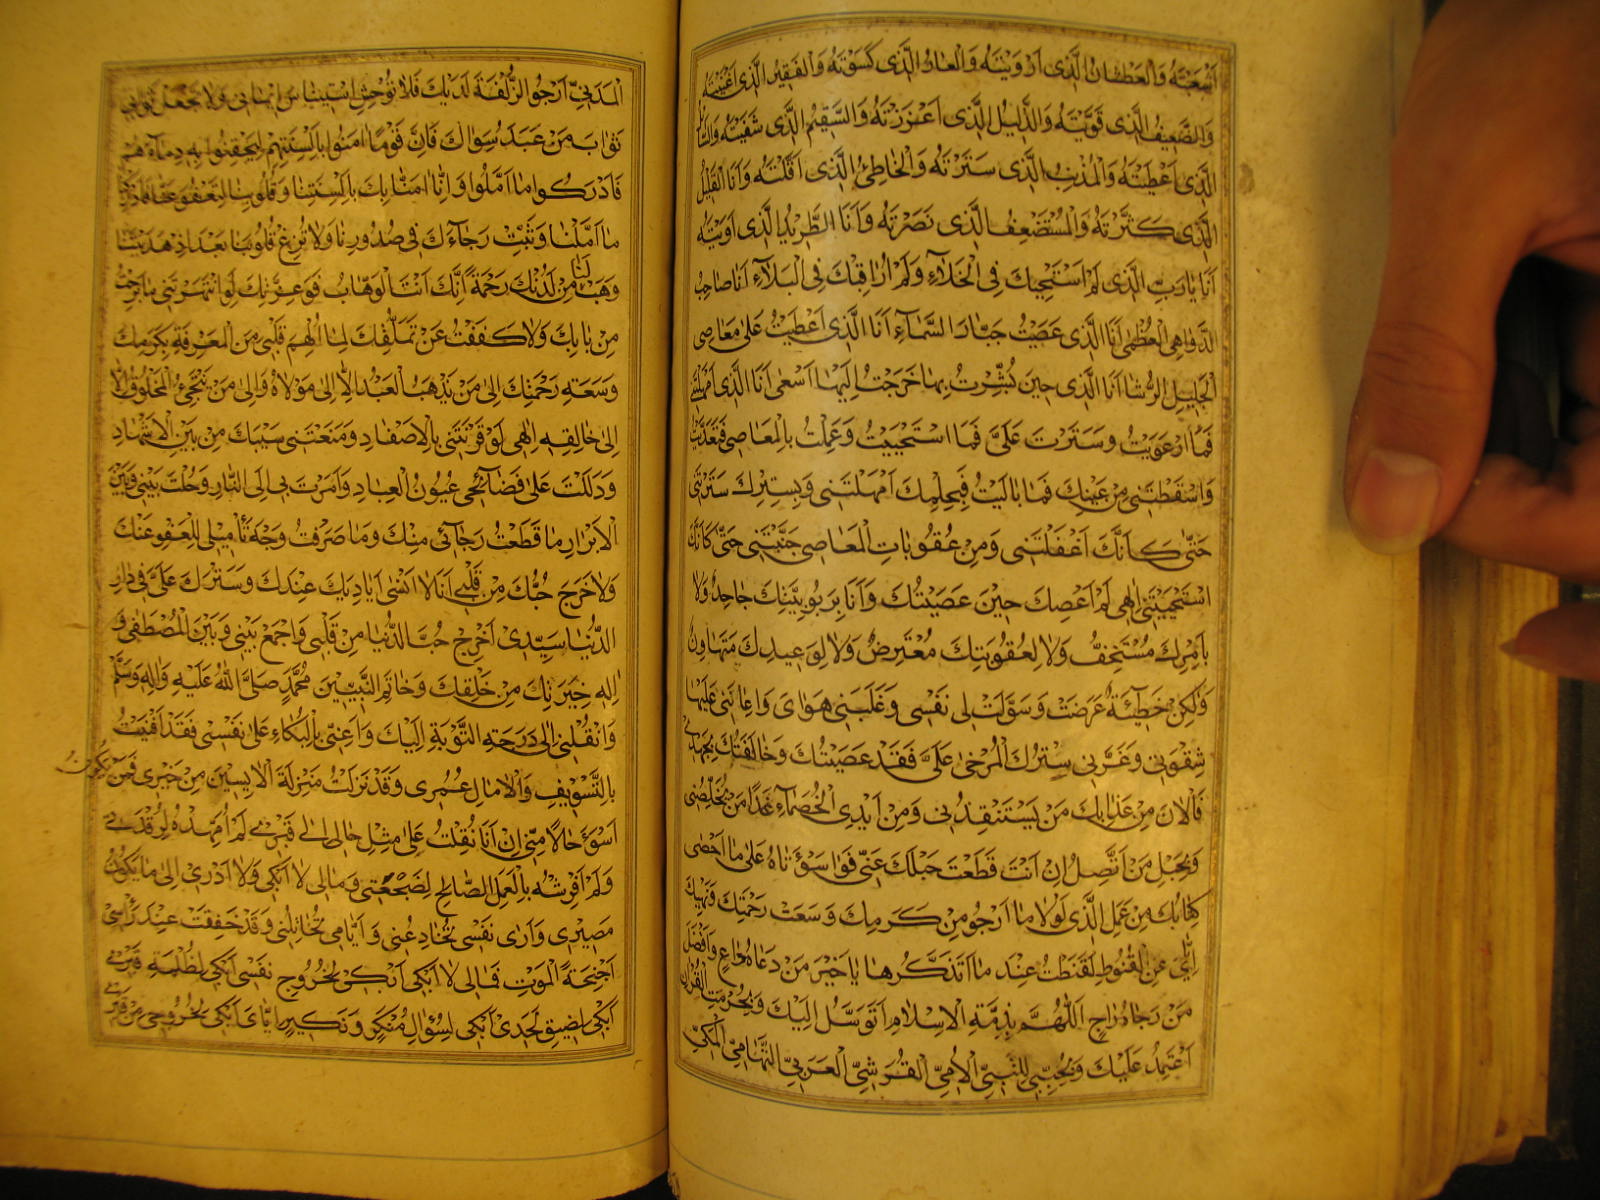 اَشْبَعْتَهُ وَالْعَطْشَانُ الَّذى اَرْوَيْتَهُ وَالْعَارُ الَّذى كَسَوْتَهُ وَالْفَقيرُ الَّذى اَغْنَيْتَهُ
وَالضَّعِيفُ الَّذى قَوَّيْتَهُ وَالذَّليلُ الَّذى اَعْزَزْتَهُ وَالسَّقيمُ الَّذى شَفَيْتَهُ وَالسَّائِلُ
الَّذى اَعْطَيْتَهُ وَالْمُذْنِبُ الَّذى سَتَرْتَهُ وَالْخَاطِئُ الَّذى اَقَلْتَهُ وَاَنَا الْقَليلُ
الَّذى كَثَّرْتَهُ وَالْمُسْتَضْعَفُ الَّذى نَصَرْتَهُ وَاَنَا الطَّريدُ الَّذى اٰوَيْتَهُ
اَنَا يَا رَبِّ الَّذى لَمْ اَسْتَحْيِكَ فِى الْخَلَاءِ وَلَمْ اُرَاقِبْكَ فِى الْمَلَاءِ اَنَا صَاحِبُ
الدَّوَاهِى الْعُظْمٰى اَنَا الَّذى عَصَيْتُ جَبَّارَ السَّمَاءِ اَنَا الَّذى اَعْطَيْتُ عَلٰى مَعَاصِى
الْجَليلِ الرُّشَا اَنَا الَّذى حينَ بُشِّرْتُ بِهَا خَرَجْتُ اِلَيْهَا اَسْعٰى اَنَا الَّذى اَمْهَلْتَنى
فَمَا ارْعَوَيْتُ وَسَتَرْتَ عَلَىَّ فَمَا اسْتَحْيَيْتُ وَعَمِلْتُ بِالْمَعَاصى فَتَعَدَّيْتُ
وَاَسْقَطْتَنى مِنْ عَيْنِكَ فَمَا بَالَيْتُ فَبِحِلْمِكَ اَمْهَلْتَنى وَبِسِتْرِكَ سَتَرْتَنى
حَتّٰى كَاَنَّكَ اَغْفَلْتَنى وَمِنْ عُقُوبَاتِ الْمَعَاصى جَنَّبْتَنى حَتّٰى كَاَنَّكَ
اسْتَحْيَيْتَنى اِلٰهى لَمْ اَعْصِكَ حينَ عَصَيْتُكَ وَاَنَا بِرُبُوبِيَّتِكَ جَاحِدٌ وَلَا
بِاَمْرِكَ مُسْتَخِفٌّ وَلَا لِعُقُوبَتِكَ مُعْتَرِضٌ وَلَا لِوَعيدِكَ مُتَهَاوِنٌ
وَلٰكِنْ خَطيئَةٌ عَرَضَتْ وَسَوَّلَتْ لى نَفْسى وَغَلَبَنى هَوَاىَ وَاَعَانَنى عَلَيْهَا
شِقْوَتى وَغَرَّنى سِتْرُكَ الْمُرْخٰى عَلَىَّ فَقَدْ عَصَيْتُكَ وَخَالَفْتُكَ بِجَهْدى
فَالْاٰنَ مِنْ عَذَابِكَ مَنْ يَسْتَنْقِذُنى وَمِنْ اَيْدِى الْخُصَمَاءِ غَدًا مَنْ يُخَلِّصُنى
وَبِحَبْلِ مَنْ اَتَّصِلُ اِنْ اَنْتَ قَطَعْتَ حَبْلَكَ عَنّى فَوَا سَوْاَتَاهُ عَلٰى مَا اَحْصٰى
كِتَابُكَ مِنْ عَمَلِى الَّذى لَوْلَا مَا اَرْجُو مِنْ كَرَمِكَ وَسَعَةِ رَحْمَتِكَ وَنَهْيِكَ
اِيَّاىَ عَنِ الْقُنُوطِ لَقَنَطْتُ عِنْدَ مَا اَتَذَكَّرُهَا يَا خَيْرَ مَنْ دَعَاهُ دَاعٍ وَاَفْضَلَ
مَنْ رَجَاهُ رَاجٍ اَللّٰهُمَّ بِذِمَّةِ الْاِسْلَامِ اَتَوَسَّلُ اِلَيْكَ وَبِحُرْمَةِ الْقُرْاٰنِ
اَعْتَمِدُ عَلَيْكَ وَبِحُبِّى لِلنَّبِىِّ الْاُمِّىِّ الْقُرَشِىِّ الْعَرَبِىِّ التِّهَامِىِّ الْمَكِّىِّ
الْمَدَنِىِّ اَرْجُو الزُّلْفَةَ لَدَيْكَ فَلَا تُوحِشِ اسْتينَاسَ ايمَانى وَلَا تَجْعَلْ ثَوَابى
ثَوَابَ مَنْ عَبَدَ سِوَاكَ فَاِنَّ قَوْمًا اٰمَنُوا بِاَلْسِنَتِهِمْ لِيَحْقِنُوا بِهِ دِمَاءَهُمْ
فَاَدْرَكُوا مَا اَمَّلُوا وَاِنَّا اٰمَنَّا بِكَ بِاَلْسِنَتِنَا وَقُلُوبِنَا لِتَعْفُوَ عَنَّا فَاَدْرِكْنَا
مَا اَمَّلْنَا وَثَبِّتْ رَجَاءَكَ فى صُدُورِنَا وَلَا تُزِغْ قُلُوبَنَا بَعْدَ اِذْ هَدَيْتَنَا
وَهَبْ لَنَا مِنْ لَدُنْكَ رَحْمَةً اِنَّكَ اَنْتَ الْوَهَّابُ فَوَعِزَّتِكَ لَوِ انْتَهَرْتَنى مَا بَرِحْتُ
مِنْ بَابِكَ وَلَا كَفَفْتُ عَنْ تَمَلُّقِكَ لِمَا اُلْهِمَ قَلْبى مِنَ الْمَعْرِفَةِ بِكَرَمِكَ
وَسَعَةِ رَحْمَتِكَ اِلٰى مَنْ يَذْهَبُ الْعَبْدُ اِلَّا اِلٰى مَوْلَاهُ وَاِلٰى مَنْ يَلْتَجِئُ الْمَخْلُوقُ اِلَّا
اِلٰى خَالِقِهِ اِلٰهى لَوْ قَرَنْتَنى بِالْاَصْفَادِ وَمَنَعْتَنى سَيْبَكَ مِنْ بَيْنِ الْاَشْهَادِ
وَدَلَلْتَ عَلٰى فَضَائِحى عُيُونَ الْعِبَادِ وَاَمَرْتَ بى اِلَى النَّارِ وَحُلْتَ بَيْنى وَبَيْنَ
الْاَبْرَارِ مَا قَطَعْتُ رَجَائى مِنْكَ وَمَا صَرَفْتُ وَجْهَ تَأْميلى لِلْعَفْوِ عَنْكَ
وَلَا خَرَجَ حُبُّكَ مِنْ قَلْبى اَنَا لَا اَنْسٰى اَيَادِيَكَ عِنْدى وَسَتْرَكَ عَلَىَّ فى دَارِ
الدُّنْيَا سَيِّدى اَخْرِجْ حُبَّ الدُّنْيَا مِنْ قَلْبى وَاجْمَعْ بَيْنى وَبَيْنَ الْمُصْطَفٰى وَ
اٰلِهِ خِيَرَتِكَ مِنْ خَلْقِكَ وَخَاتَمِ النَّبِيّينَ مُحَمَّدٍ صَلَّى اللّٰهُ عَلَيْهِ وَاٰلِهِ وَسَلَّمَ
وَانْقُلْنى اِلٰى دَرَجَةِ التَّوْبَةِ اِلَيْكَ وَاَعِنّى بِالْبُكَاءِ عَلٰى نَفْسى فَقَدْ اَفْنَيْتُ
بِالتَّسْويفِ وَالْاٰمَالِ عُمُرى وَقَدْ نَزَلْتُ مَنْزِلَةَ الْاٰيِسينَ مِنْ خَيْرى فَمَنْ يَكُونُ
اَسْوَءَ حَالًا مِنّى اِنْ اَنَا نُقِلْتُ عَلٰى مِثْلِ حَالى اِلٰى قَبْرى لَمْ اُمَهِّدْهُ لِرَقْدَتى
وَلَمْ اَفْرُشْهُ بِالْعَمَلِ الصَّالِحِ لِضَجْعَتى وَمَالى لَا اَبْكى وَلَا اَدْرى اِلٰى مَا يَكُونُ
مَصيرى وَاَرٰى نَفْسى تُخَادِعُنى وَاَيَّامى تُخَاتِلُنى وَقَدْ خَفَقَتْ عِنْدَ رَأْسى
اَجْنِحَةُ الْمَوْتِ فَمَالى لَا اَبْكى اَبْكى لِخُرُوجِ نَفْسى اَبْكى لِظُلْمَةِ قَبْرى
اَبْكى لِضيقِ لَحَدى اَبْكى لِسُؤَالِ مُنْكَرٍ وَنَكيرٍ اِيَّاىَ اَبْكى لِخُرُوجى مِنْ قَبْرى